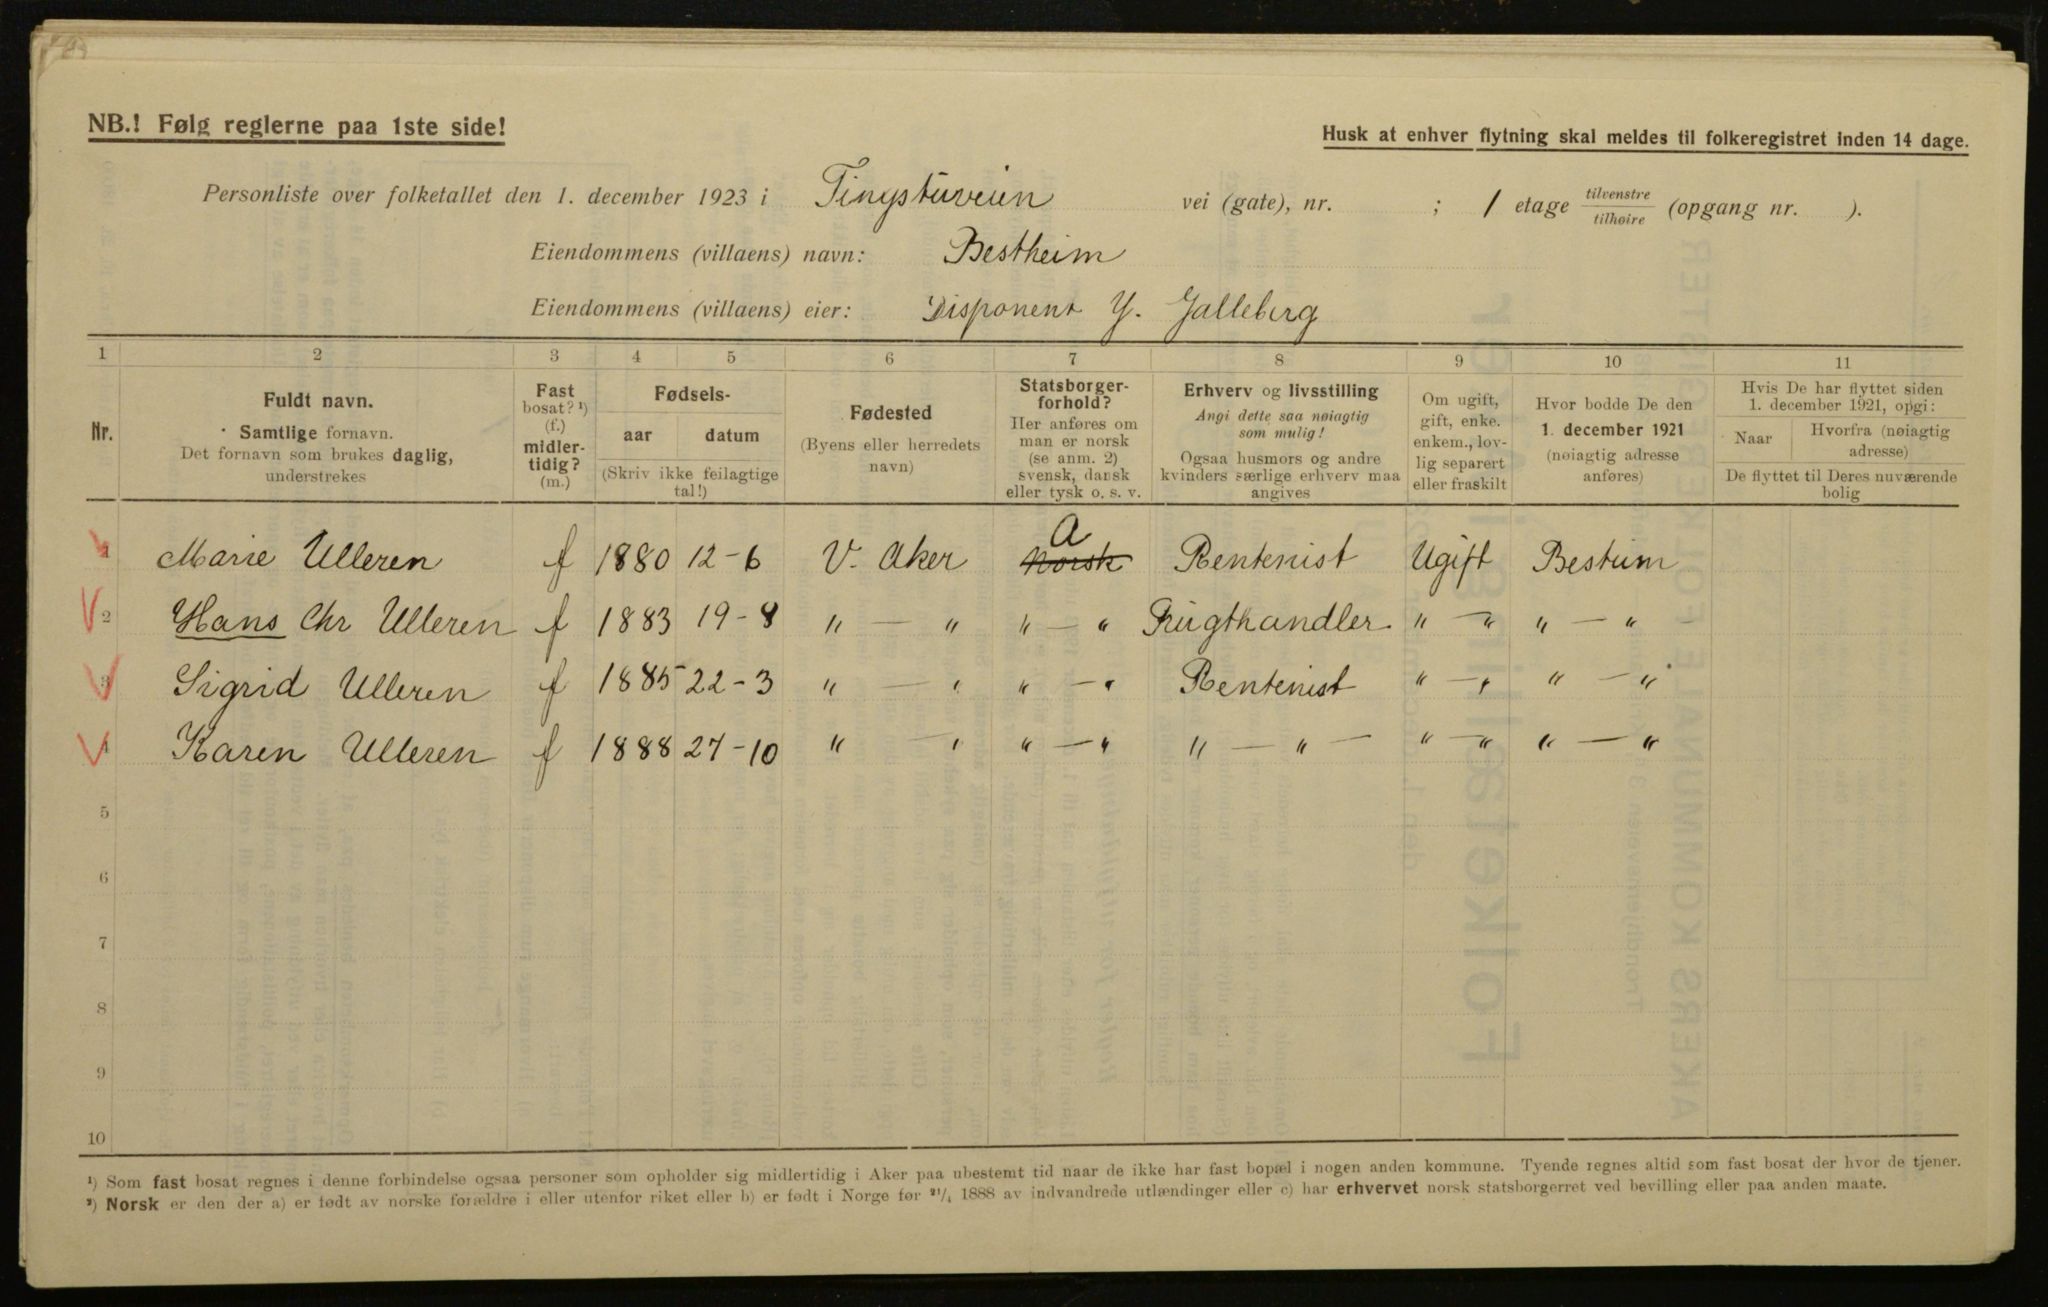 NB.! Følg reglerne paa 1ste side!
Husk at enhver flytning skal meldes til folkeregistret inden 14 dage.
Personliste over folketallet den 1. december 1923 i Tingstuveien vei (gate), nr. ; 1 etage tilvenstre tilhøire (opgang nr. ).
Eiendommens (villaens) navn: Bestheim
Eiendommens (villaens) eier: Disponent Y. Galleberg
1 2 3 4 5 6 7 8 9 10 11
Nr.
Fuldt navn.
Samtlige fornavn.
Det fornavn som brukes daglig,
understrekes
Fast
bosat? ¹)
(f.)
midler-
tidig?
(m.)
Fødsels-
aar datum
(Skriv ikke feilagtige
tal!)
Fødested
(Byens eller herredets
navn)
Statsborger-
forhold?
Her anføres om
man er norsk
(se anm. 2)
svensk, dansk
eller tysk o. s. v.
Erhverv og livsstilling
Angi dette saa nøiagtig
som mulig!
Ogsaa husmors og andre
kvinders særlige erhverv maa
angives
Om ugift,
gift, enke.
enkem., lov-
lig separert
eller fraskilt
Hvor bodde De den
1. december 1921
(nøiagtig adresse
anføres)
Hvis De har flyttet siden
1. december 1921, opgi:
Naar
Hvorfra (nøiagtig
adresse)
De flyttet til Deres nuværende
bolig
A
1 Marie Ulleren f 1880 12-6 V. Aker Norsk Rentenist Ugift Bestum
2 Hans Chr Ulleren f 1883 19-8 " — " " — " Frugthandler " — " " — "
3 Sigrid Ulleren f 1885 22-3 " — " " — " Rentenist " — " " — "
4 Karen Ulleren f 1888 27-10 " — " " — " " — " — " — " " — "
5
6
7
8
9
10
¹) Som fast bosat regnes i denne forbindelse ogsaa personer som opholder sig midlertidig i Aker paa ubestemt tid naar de ikke har fast bopæl i nogen anden kommune. Tyende regnes altid som fast bosat der hvor de tjener.
²) Norsk er den der a) er født av norske forældre i eller utenfor riket eller b) er født i Norge før ²¹/₄ 1888 av indvandrede utlændinger eller c) har erhvervet norsk statsborgerret ved bevilling eller paa anden maate.